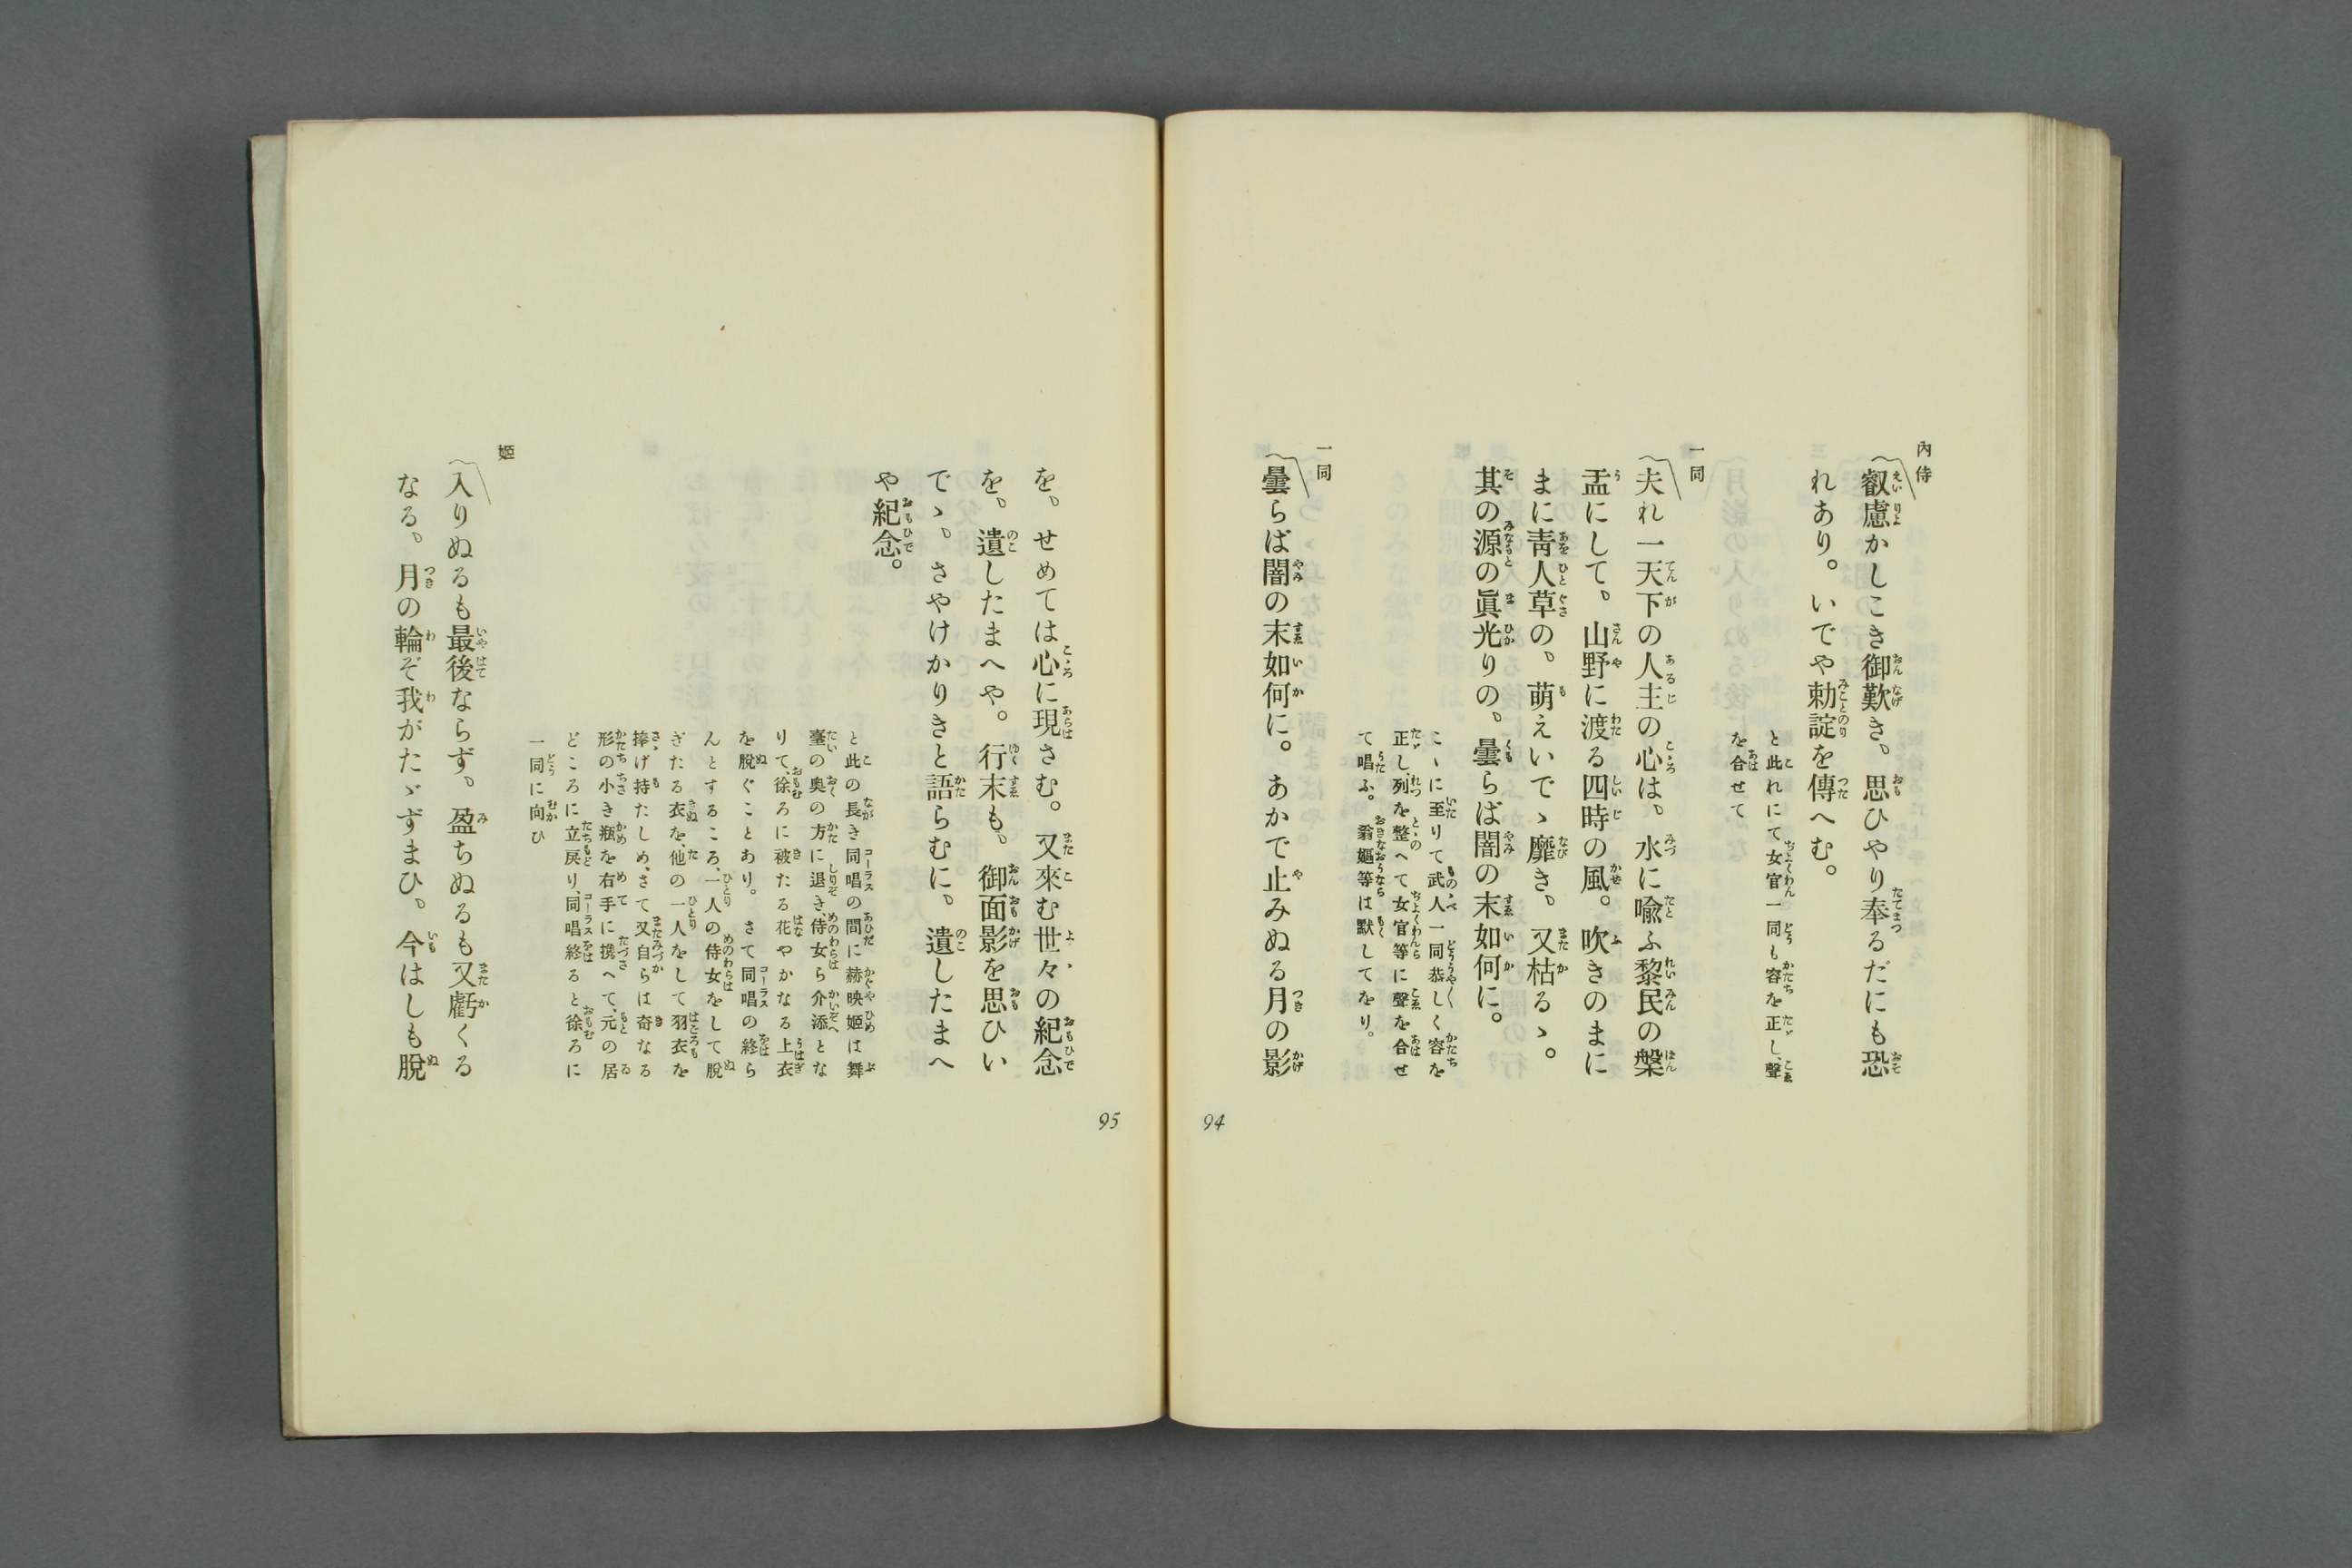 内侍
〽叡慮かしこき御歎き、思ひやり奉るだにも恐
れあり。いでや勅諚を傳へむ。
と此れにて女官一同も容を正し、聲
を合せて
一同
〽夫れ一天下の人主の心は、水に喩ふ黎民の槃
盂にして、山野に渡る四時の風。吹きのまに
まに靑人草の、萌えいでゝ靡き、又枯るゝ。
其の源の眞光りの、曇らば闇の末如何に。
こゝに至りて武人一同恭しく容を
正し、列を整へて女官等に聲を合せ
て唱ふ。翁嫗等は默してをり。
一同
〽曇らば闇の末如何に。あかで止みぬる月の影
94
を、せめては心に現さむ。又來む世々の紀念
を、遺したまへや。行末も、御面影を思ひい
でゝ、さやけかりきと語らむに、遺したまへ
や紀念。
と此の長き同唱の間に赫映姬は舞
臺の奧の方に退き、侍女ら介添とな
りて、徐ろに被たる花やかなる上衣
を脫ぐことあり。さて同唱の終ら
んとするころ、一人の侍女をして脫
ぎたる衣を、他の一人をして羽衣を
捧げ持たしめ、さて又自らは奇なる
形の小き瓶を右手に携へて、元の居
どころに立戾り、同唱終ると徐ろに
一同に向ひ
姬
〽入りぬるも最後ならず、盈ちぬるも又虧くる
なる、月の輪ぞ我がたゞずまひ、今はしも脫
95